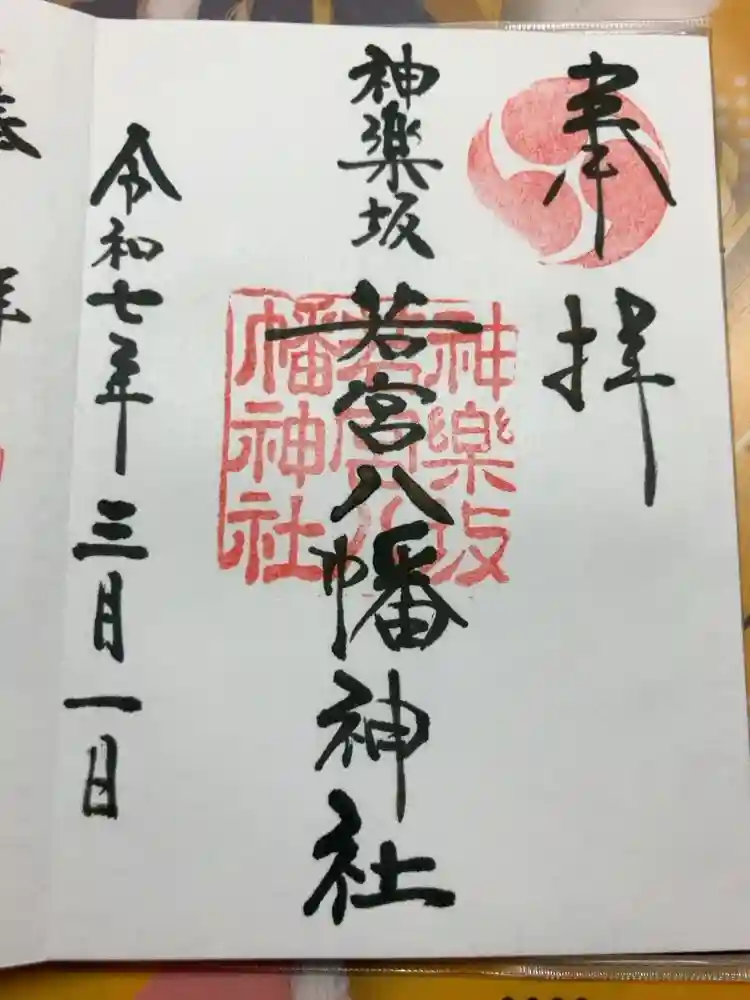 奉拝
神楽坂 若宮八幡神社
神樂坂
若宮八
幡神社
令和七年三月一日